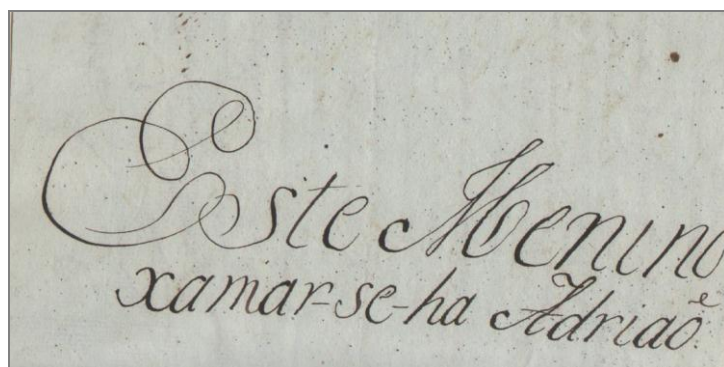 Este Menino
xamar-se-ha Adriaõ